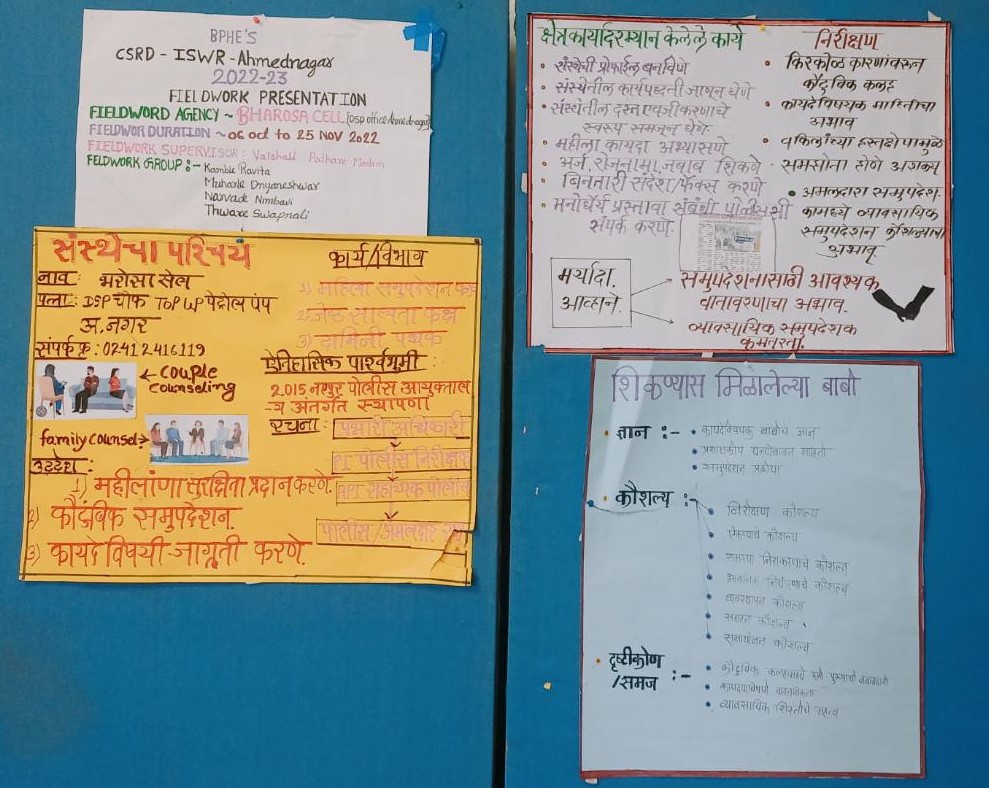 BPHE'S
CSRD - ISWR - Ahmednagar
2022-23
FIELDWORK PRESENTATION
FIELDWORD AGENCY ~ BHAROSA CELL [DSP office Ahmednagar]
FIELDWOR DURATION ~ 06 oct to 25 NOV 2022
FIELDWORK SUPERVISOR : Vaishali Padhare Madam
FELDWORK GROUP :-
Kamble Ravita
Muharle Dnyaneshwar
Narvade Nimbavi
Thware Swapnali
संस्थेचा परिचय
नाव : भरोसा सेल
पत्ता : DSP चौक TOP UP पेट्रोल पंप
अ.नगर
संपर्क क्र : 02412416119
← couple
counseling
family counsel →
उद्देश :
1) महीलांणा सुरक्षिता प्रदान करणे.
2) कौटुंबिक समुपदेशन.
3) कायदे विषयी जागृती करणे.
कार्य/विभाग
1) महिला समुपदेशन कक्ष
2) जेष्ठ साह्यता कक्ष
3) दामिनी पथक
ऐतिहासिक पार्श्वभूमी :
2015 नागपुर पोलीस आयुक्ताल
-य अंतर्गत स्थापणा
रचना : प्रभारी अधिकारी
PI पोलीस निरीक्षक
API सहाय्यक पोलीस
पोलीस/अमलदार
क्षेत्रकार्यादरम्यान केलेले कार्य
• संस्थेची प्रोफाईल बनविणे
• संस्थेतील कार्यपध्दती जाणून घेणे
• संस्थेतील दस्तऐवजीकरणाचे
स्वरुप समजून घेणे
• महीला कायदा अभ्यासणे
• अर्ज, रोजनामा, जबाब शिकणे
• बिनतारी संदेश/फॅक्स करणे
• मनोधैर्य प्रस्तावा संबंधी पोलीसांशी
संपर्क करणे.
निरीक्षण
• किरकोळ कारणांवरून
कौटुंबिक कलह
• कायदेविषयक माहितीचा
अभाव
• वकिलांच्या हस्तक्षेपामुळे
समझोता होणे अशक्य
• अमलदारास समुपदेश-
कामध्ये व्यावसायिक
समुपदेशन कौशल्याचा
अभाव.
मर्यादा.
आव्हाने.
समुपदेशनासाठी आवश्यक
वातावरणाचा अभाव.
व्यावसायिक समुपदेशक
कमतरता.
शिकण्यास मिळालेल्या बाबी
• ज्ञान :- • कायदेविषयक बाबींचे ज्ञान
• समुपदेशन प्रक्रीया
• कौशल्य :-
• निरीक्षण कौशल्य
• ऐकण्याचे कौशल्य
• समस्या निराकरणाचे कौशल्य
• भावनिक नियंत्रणाचे कौशल्य
• व्यवस्थापन कौशल्य
• संवाद कौशल्य
• समायोजन कौशल्य
• दृष्टीकोण
/समज :-
• कायद्याविषयी वास्तविकता
• व्यावसायिक शिस्तीचे महत्व